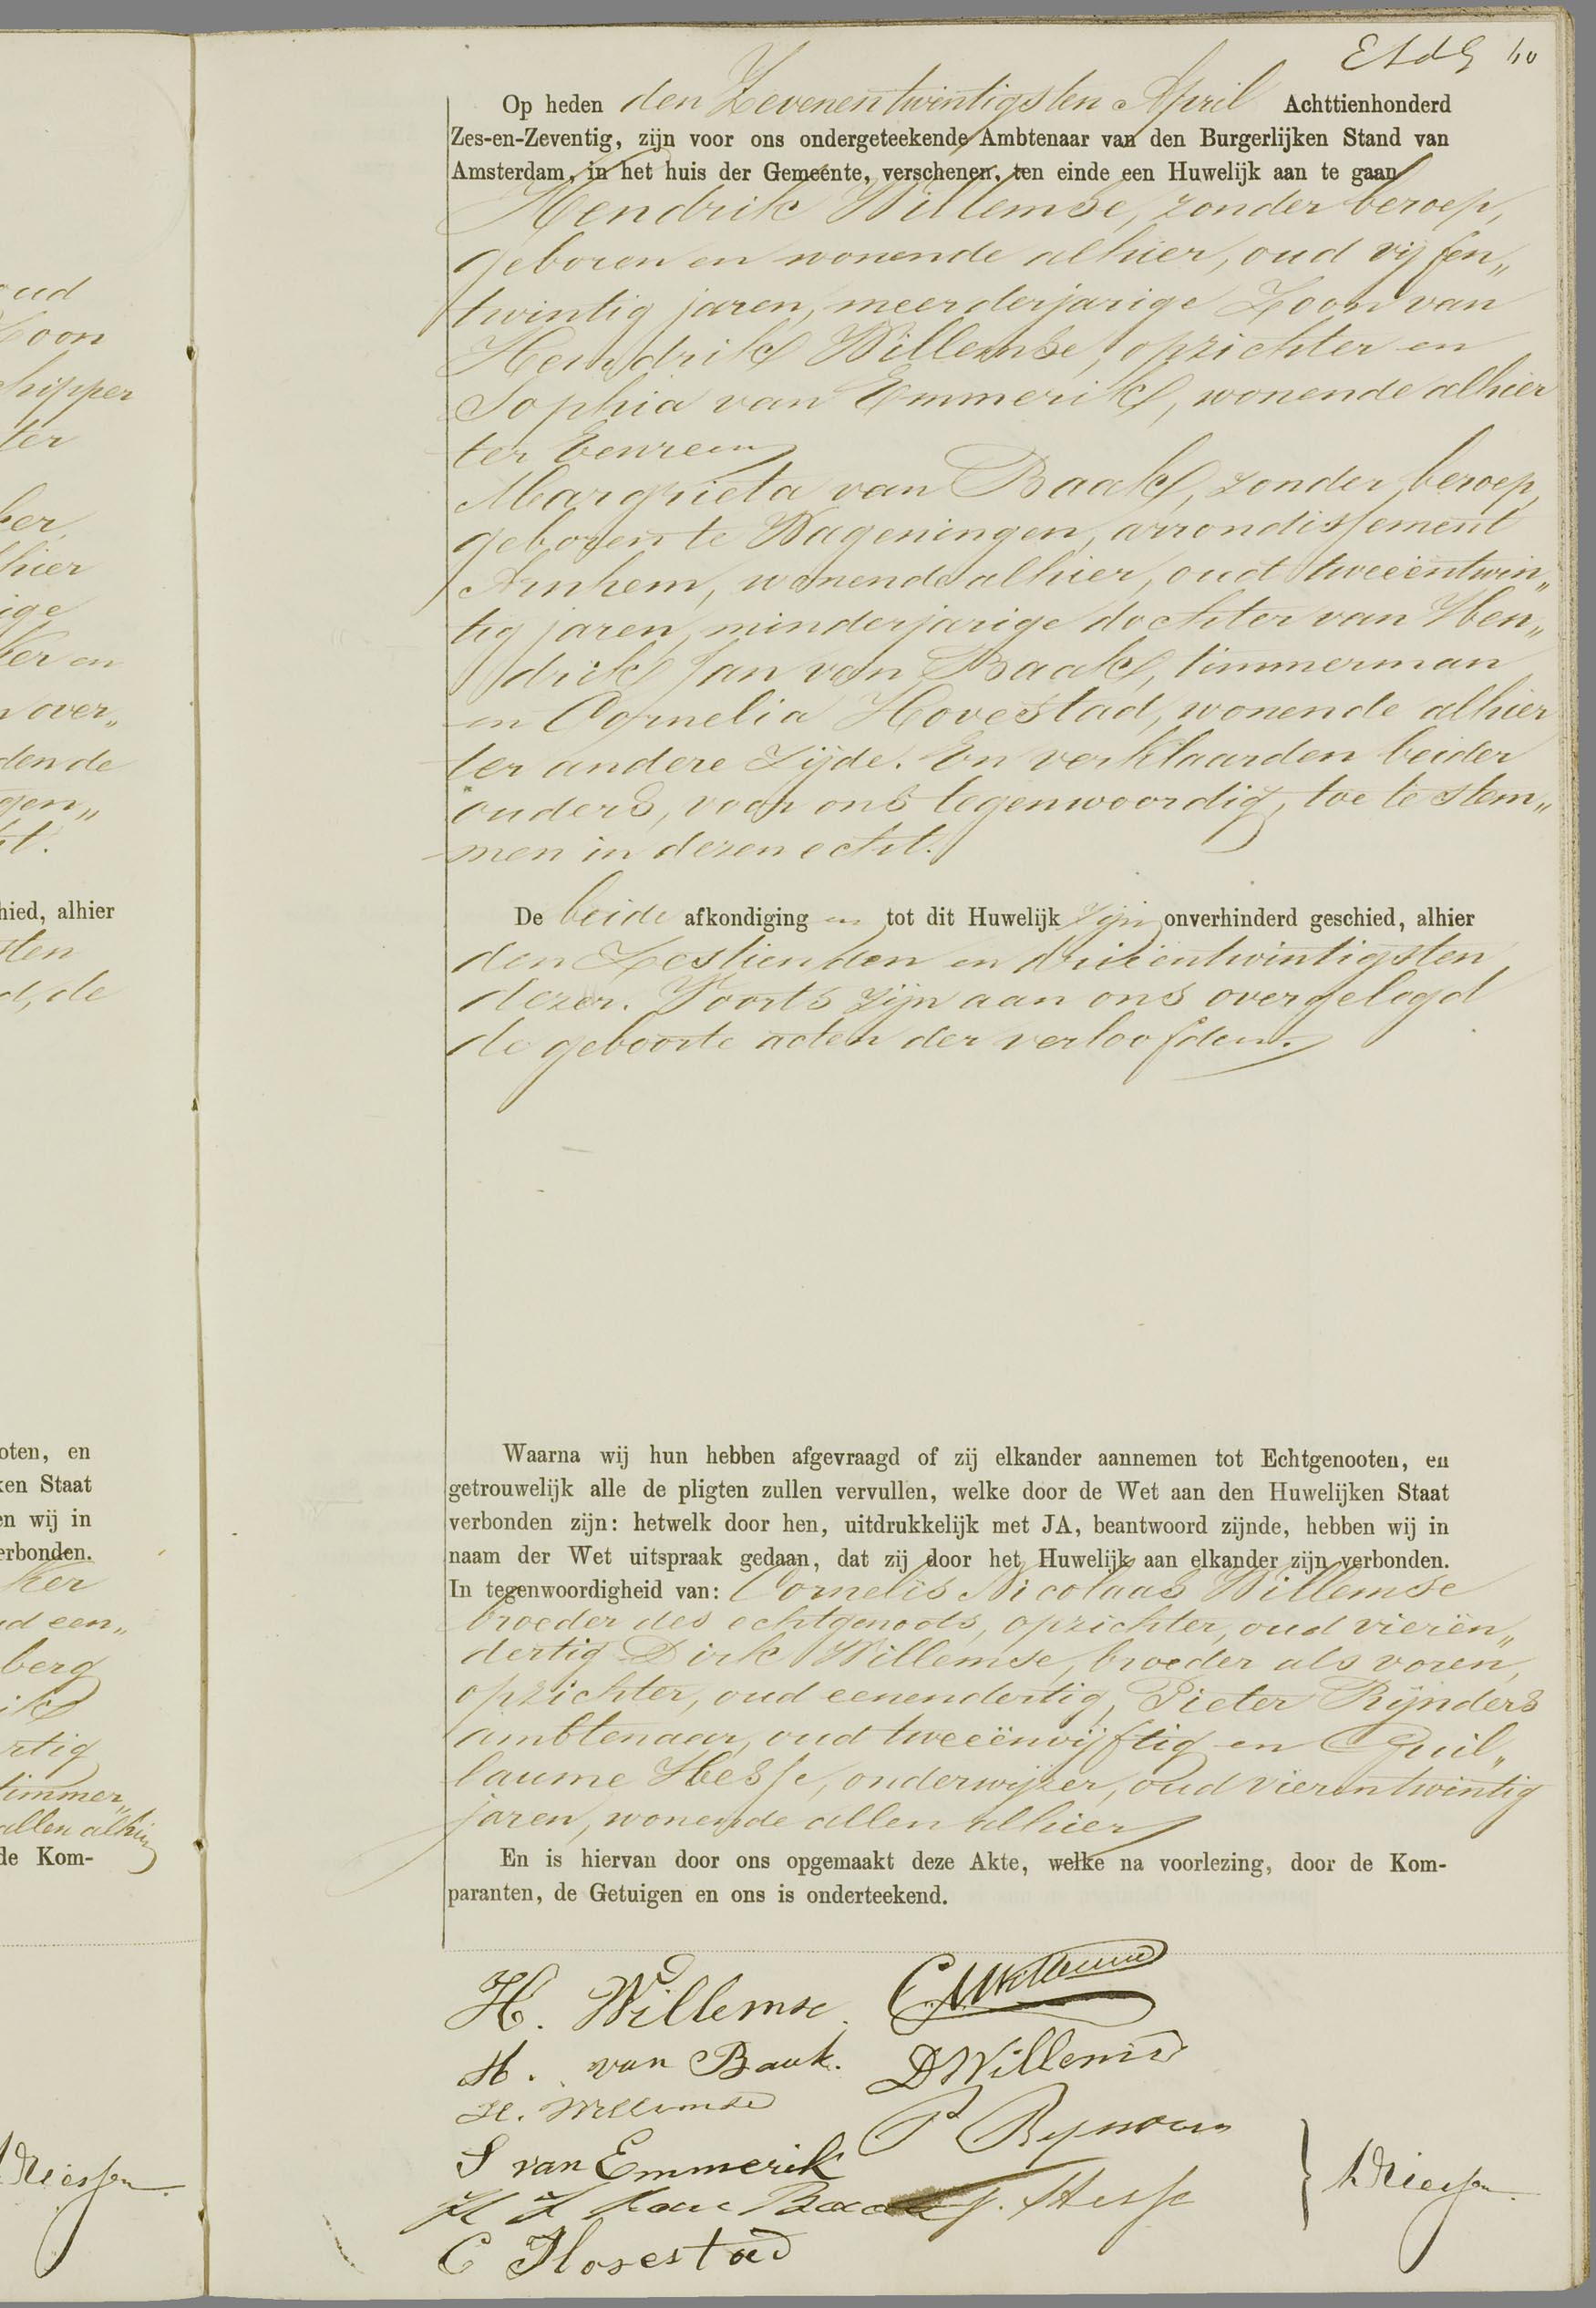 oud
Zoon
chipper
ter
ker
hier
ige
ker en
over„
dende
gen„
ht.
hied, alhier
sten
d, de
oten, en
ken Staat
en wij in
erbonden.
ker
ud een„
berg
rtig
timmer„
allen alhier
de Kom-
40
Op heden den Zevenentwintigsten April Achttienhonderd
Zes-en-Zeventig, zijn voor ons ondergeteekende Ambtenaar van den Burgerlijken Stand van
Amsterdam, in het huis der Gemeente, verschenen, ten einde een Huwelijk aan te gaan
Hendrik Willemse, zonder beroep,
geboren en wonende alhier, oud vijfen„
twintig jaren, meerderjarige Zoon van
Hendrik Willemse, opzichter en
Sophia van Emmerik, wonende alhier
ter Eenre en
Margrieta van Baak, zonder beroep,
geboren te Wageningen, arrondissement
Arnhem, wonende alhier, oud tweeëntwin„
tig jaren, minderjarige dochter van Hen„
drik Jan van Baak, timmerman
en Cornelia Hovestad, wonende alhier
ter andere Zijde. En verklaarden beider
ouders, voor ons tegenwoordig, toe te stem„
men in dezen echt.
De beide afkondiging en tot dit Huwelijk zijn onverhinderd geschied, alhier
den Zestienden en drieëntwintigsten
dezer. Voorts zijn aan ons overgelegd
de geboorte acten der verloofden.
Waarna wij hun hebben afgevraagd of zij elkander aannemen tot Echtgenooten, en
getrouwelijk alle de pligten zullen vervullen, welke door de Wet aan den Huwelijken Staat
verbonden zijn: hetwelk door hen, uitdrukkelijk met JA, beantwoord zijnde, hebben wij in
naam der Wet uitspraak gedaan, dat zij door het Huwelijk aan elkander zijn verbonden.
In tegenwoordigheid van: Cornelis Nicolaas Willemse
broeder des echtgenoots, opzichter, oud vierën„
dertig Dirk Willemse, broeder als voren,
opzichter, oud eenendertig, Pieter Rijnders
ambtenaar, oud tweeënvijftig en Guil„
laume Hesse, onderwijzer, oud vierentwintig
jaren, wonende allen alhier
En is hiervan door ons opgemaakt deze Akte, welke na voorlezing, door de Kom-
paranten, de Getuigen en ons is onderteekend.
H. Willemse. C. N. Willemse
M. van Baak. D Willemse
H. Willemse
P Rijnders
S van Emmerik
H J van Baak G. Hesse
C Hovestad